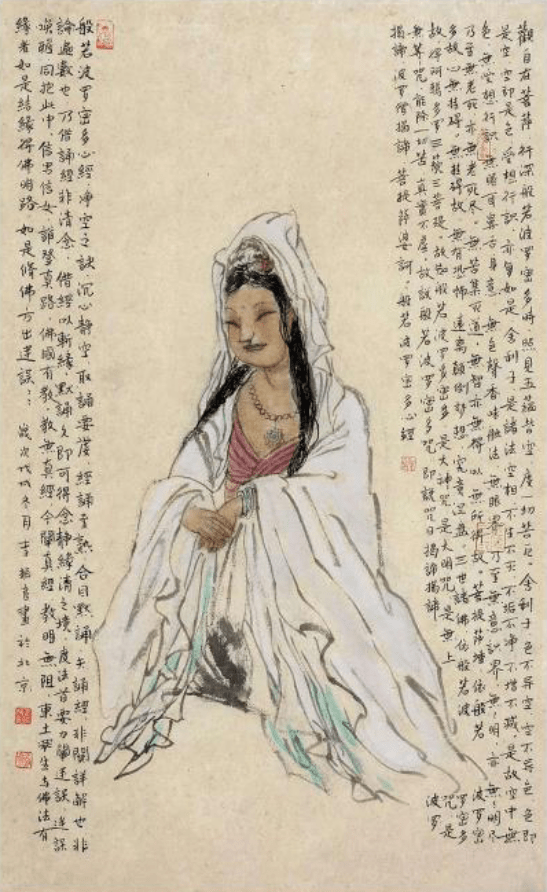 觀自在菩萨 行深般若波罗密多時 照見五蕴皆空 度一切苦厄 舍利子 色不异空 空不异色 色即
是空 空即是色 受想行識 亦复如是 舍利子 是諸法空相 不生不灭 不垢不净 不增不减 是故空中無
色 無受想行識 無眼耳鼻舌身意 無色聲香味触法 無眼界 乃至無意識界 無無明 亦無無明尽
乃至無老死 亦無老死尽 無苦集灭道 無智亦無得 以無所得故 菩提萨埵 依般若波罗密
多故 心無挂碍 無挂碍故 無有恐怖 遠離顛倒梦想 究竟涅盘 三世諸佛 依般若波罗密多
故 得阿耨多罗三藐三菩提 故知般若波罗密多 是大神咒 是大明咒 是無上咒 是
無等咒 能除一切苦 真實不虚 故説般若波罗密多咒 即説咒曰 揭諦揭諦 波罗
揭諦 波罗僧揭諦 菩提萨婆訶 般若波罗密多心經
般若波罗密多心經 净空之訣 沉心静空取誦要度 經誦至熟 合目默誦 矢誦經非関詳解也非
論遍數也 乃借誦經非清念 借經以斬緣 默誦久即可得念静緣清之境 度法首要力闢迷误 迷误
喚醒同抱此中信男信女 誰擎真路 佛國有教 教無真經 今闡真經 教明無阻 東土众生与佛法有
緣者如是結緣得佛明路 如是修佛方出迷误 歲次戊戌冬月 李 画於北京